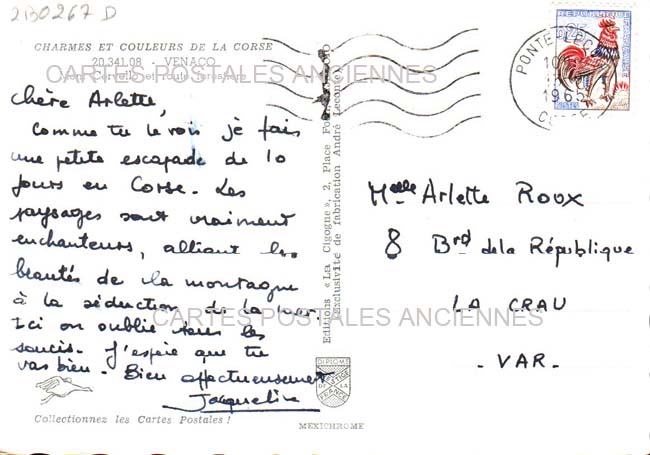 2B0267 D
CHARMES ET COULEURS DE LA CORSE
20.341.08 - VENACO
CARTES POSTALES ANCIENNES
Chère Arlette,
Comme tu le vois je fais
une petite escapade de 10
jours en Corse. Les
paysages sont vraiment
enchanteurs, alliant les
beautés de la montagne
à la séduction de la mer.
Ici on oublie tous les
soucis. J'espère que tu
vas bien. Bien affectueusement
Jacqueline
Collectionnez les Cartes Postales !
Editions « La Cigogne », 2, Place
Exclusivité de fabrication André Leconte
DIPLOME
PRESTIGE
DE LA
FRANCE
MEXICHROME
PONTE
1965
Mlle Arlette Roux
8 Brd de la République
LA CRAU
- VAR. -
CARTES POSTALES ANCIENNES